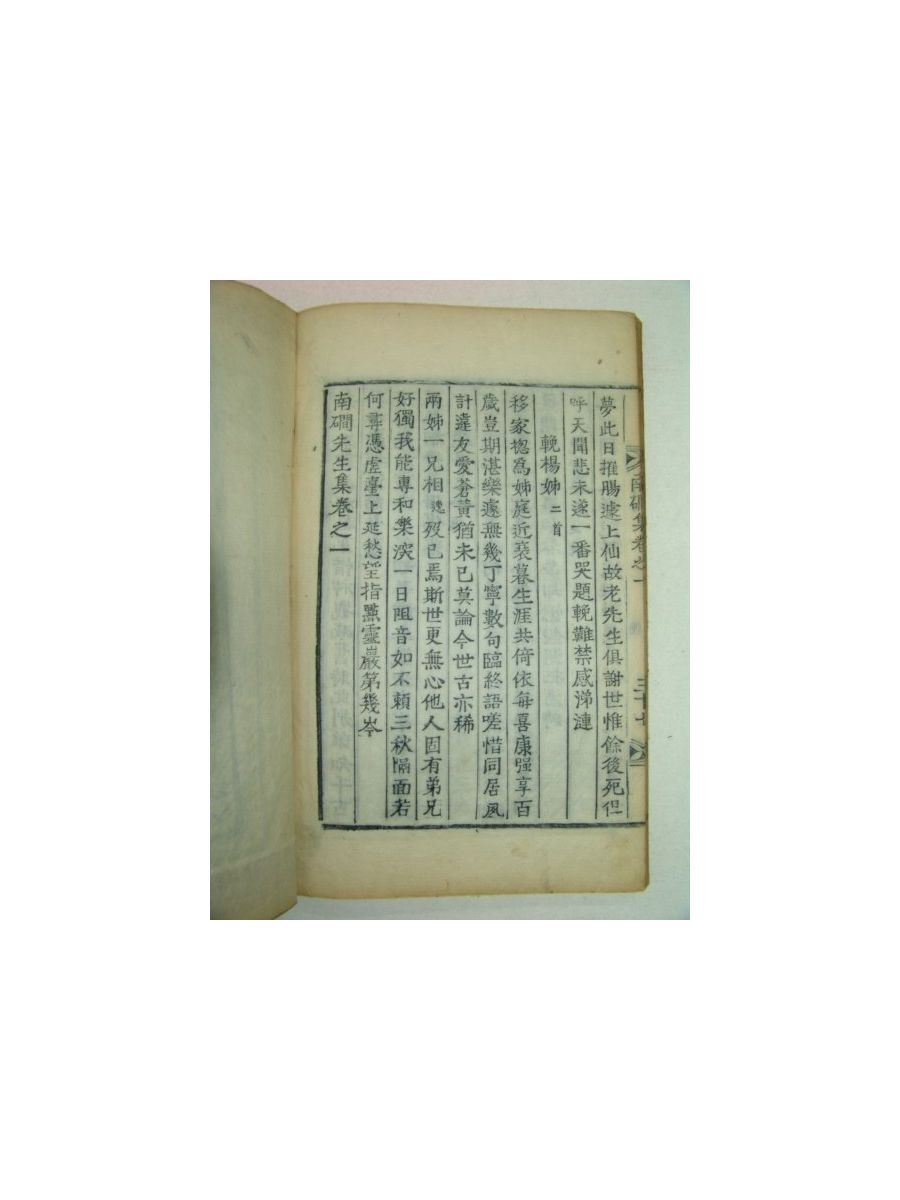 夢此日摧膓遽上仙故老先生俱謝世惟餘後死但
呼天聞悲未遂一番哭題輓難禁感涕漣
輓楊姊 二首
移家揔爲姊庭近衰暮生涯共倚依每喜康强享百
歲豈期湛樂遽無幾丁寧數句臨終語嗟惜同居夙
計違友愛蒼黃猶未已莫論今世古亦稀
兩姊一兄相逸歿已焉斯世更無心他人固有弟兄
好獨我能專和樂深一日阻音如不賴三秋隔面若
何尋憑虛臺上延愁望指點靈巖第幾岑
南磵先生集卷之一
南磵集卷之一 三十七